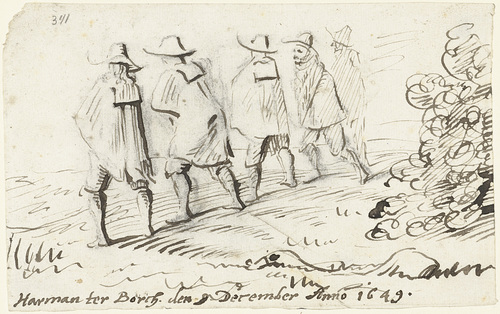 Harman ter Borch. den 9 December Anno 1649.